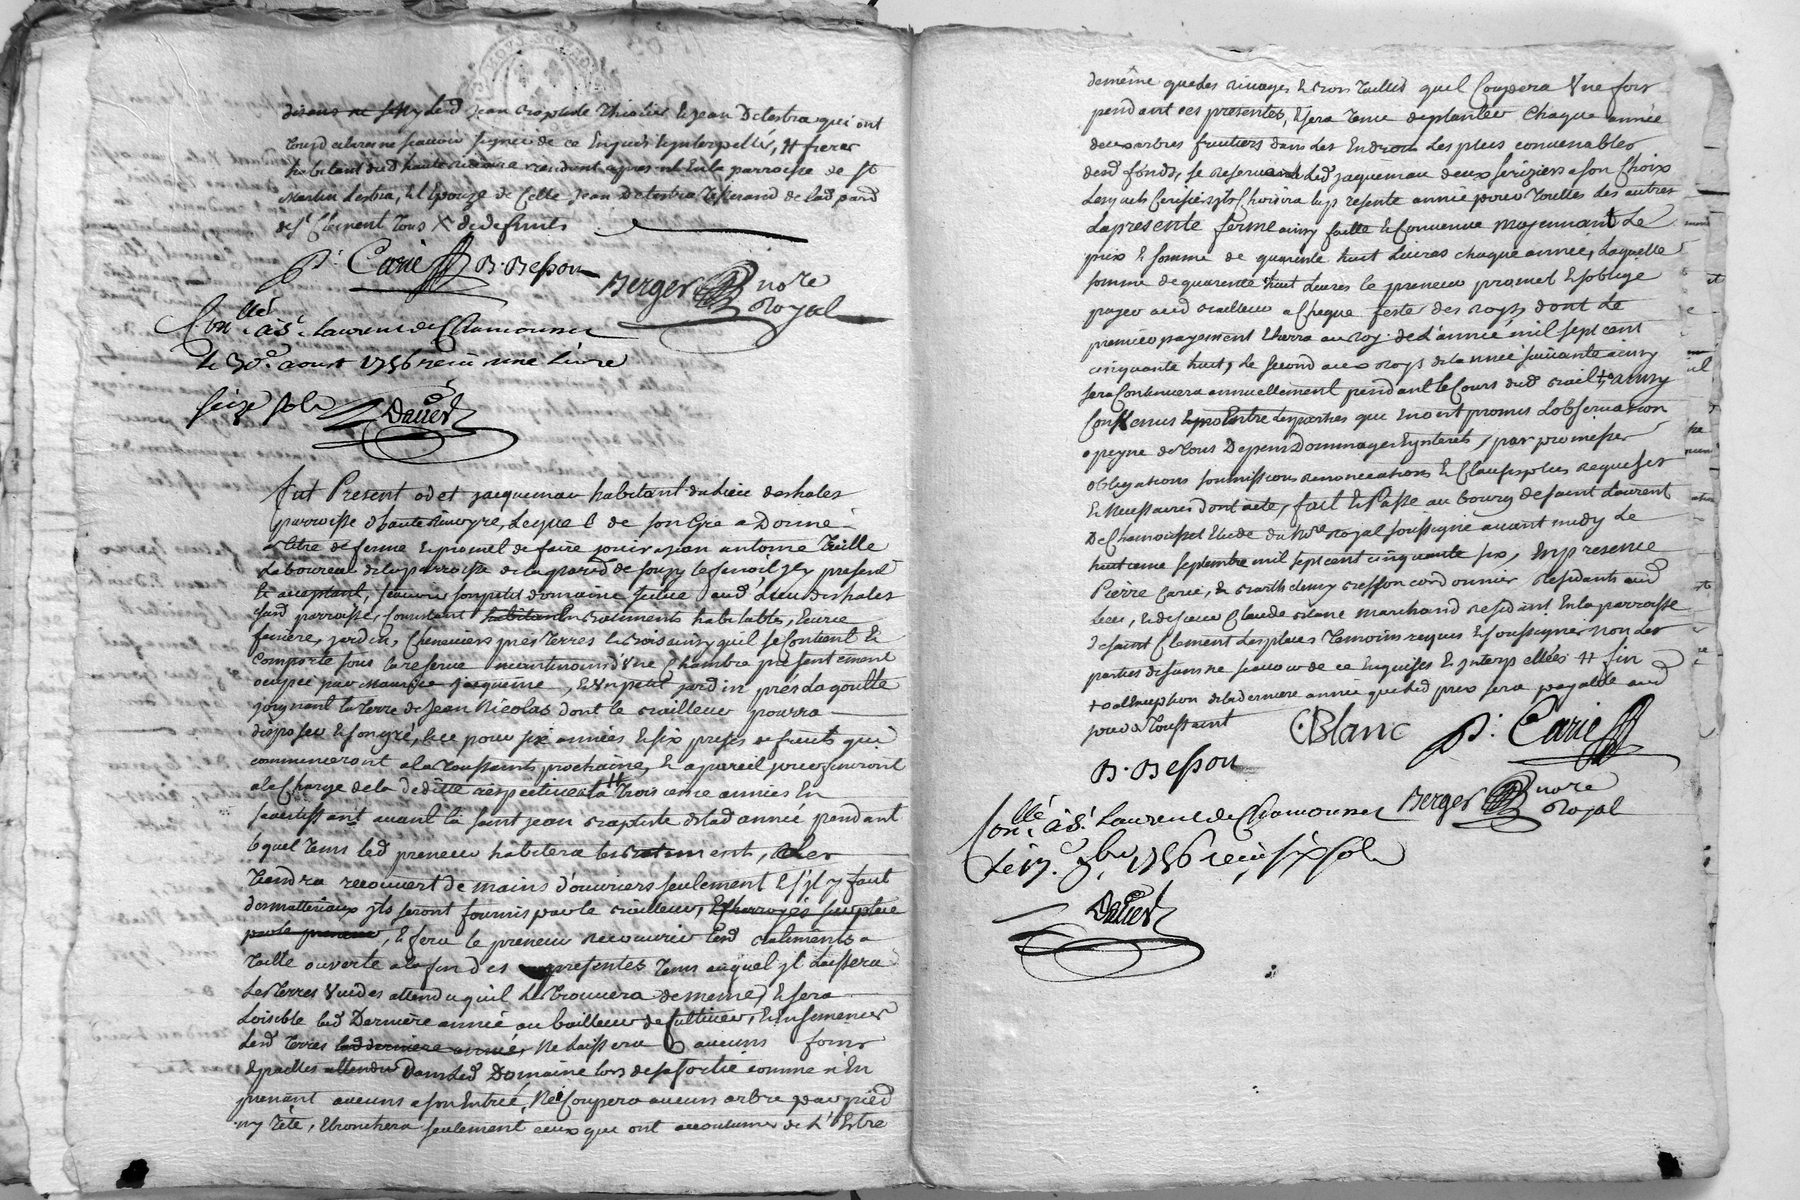 led Jean Baptiste Thiolier & Jean Delestra qui ont
signer de ce Enquis & ynterpellés, # frere
habitant dud haute rivoire residant a present En la parroisse de St
Martin Lestra, Et Epouze de Celle Jean Delestra Tisserand de lad par
de St Clement Tous
P: Carie B. Besson
Berger nore
Royal
Conllé à St. Laurent de Chamousset
le 30e. aoust 1756 reçu une Livre
seize sols Daver
fut Present odet jacquemau habitant du Lieu deshales
parroisse d'haute Rivoyre, Lequel de son Gré a Donné
a titre de ferme & promet de faire jouir a jean antoine Treille
Laboureur de la parroisse de la par de souzy present
& acceptant, scavoir son petit domaine situé aud Lieu deshales
susd parroisse, Consistant habitant Batiments habitables, Ecurie
feniere, jardin, Chenevier prés Terres & bois ainsy qu'il se Contient &
Comporte sous la reserve neantmoins d'Une Chambre présentement
ocupée par Maurice Jacqueme, & d'Un petit jardin prés la goutte
joignant la Terre de Jean Nicolas dont le Bailleur pourra
disposer & son gré, & ce pour six années & six prises de fruits qui
commenceront a la Toussaints prochaine, & a pareil jour finiront
a la Charge de la Deditte respective a la # Troisieme années En
s'avertissant avant la saint jean Baptiste de lad année pendant
lequel Tems led preneur habitera les Batiments, & les
Tiendra recouvert de mains d'ouvriers seulement & s'jl y faut
des matteriaux jls seront fournis par le Bailleur, & charroyés sur place
par le preneur, & fera le preneur recouvrir Lesd Batiments a
Taille ouverte a la fin des presentes Tems auquel jl Laissera
Les Terres Vuides attendu qu'il Les Trouvera de meme, & sera
Loisible lad Derniere année au bailleur de Cultiver, & ensemencer
Lesd Terres lad derniere année, Ne Laissera aucuns foins
& pailles attendu Dans Led Domaine lors de sa sortie comme n'En
prenant aucuns a son Entrée, Ne Coupera aucun arbre par pied
ny Tête, Ebranchera seulement ceux qui ont accoutumé de L'Estre
demême que des rivages & bois Taillis qu'il Coupera Une fois
pendant ces presentes, & sera Tenu de planter Chaque année
deux arbres fruitiers dans Les Endroits Les plus convenables
desd fonds, se reservant Led Jaquemau deux serizier a son Choix
Lesquels Cerisiers jl Choisira la presente année pour Toutes Les autres
La presente ferme ainsy faitte & Convenue Moyennant Le
prix & somme de quarante huit Livres chaque année, Laquelle
somme de quarante huit Livres le preneur promet & s'oblige
payer aud Bailleur a Chaque feste des roys dont Le
premier payement Echerra au Roy de L'année mil sept cent
cinquante huit, Le second aux Roys de la nnée suivante ainsy
sera Continuera annuellement pendant le Cours dud Bail, ainsy
Convenus Entre Les parties qui En ont promis L'observation
a peyne de Tous Depens Dommages & ynterets, par promesses
obligations soumissions renonciations & Clauses plus requises
& Necessaires dont acte, fait & Passé au bourg de saint Laurent
De Chamousset Etude du Nre Royal soussigné avant midy Le
huitieme septembre mil sept cent cinquante six, En presence
Pierre Carié, & Barthelemy Besson cordonnier Residants aud
Lieu, & de sieur Claude Blanc marchand residant En la parroisse
de saint Clement Les places Temoins requis & soussignés Non Les
parties disans ne scavoir de ce Enquises & ynterpellées # fin
+ a l'exception de la derniere année que led prix sera payable aud
jour de Toussaint
CBlanc P: Carie
B. Besson
Berger nore
Royal
Conllé à St. Laurent de Chamousset
Le 17e. 7bre, 1756 reçu six sols
Daver